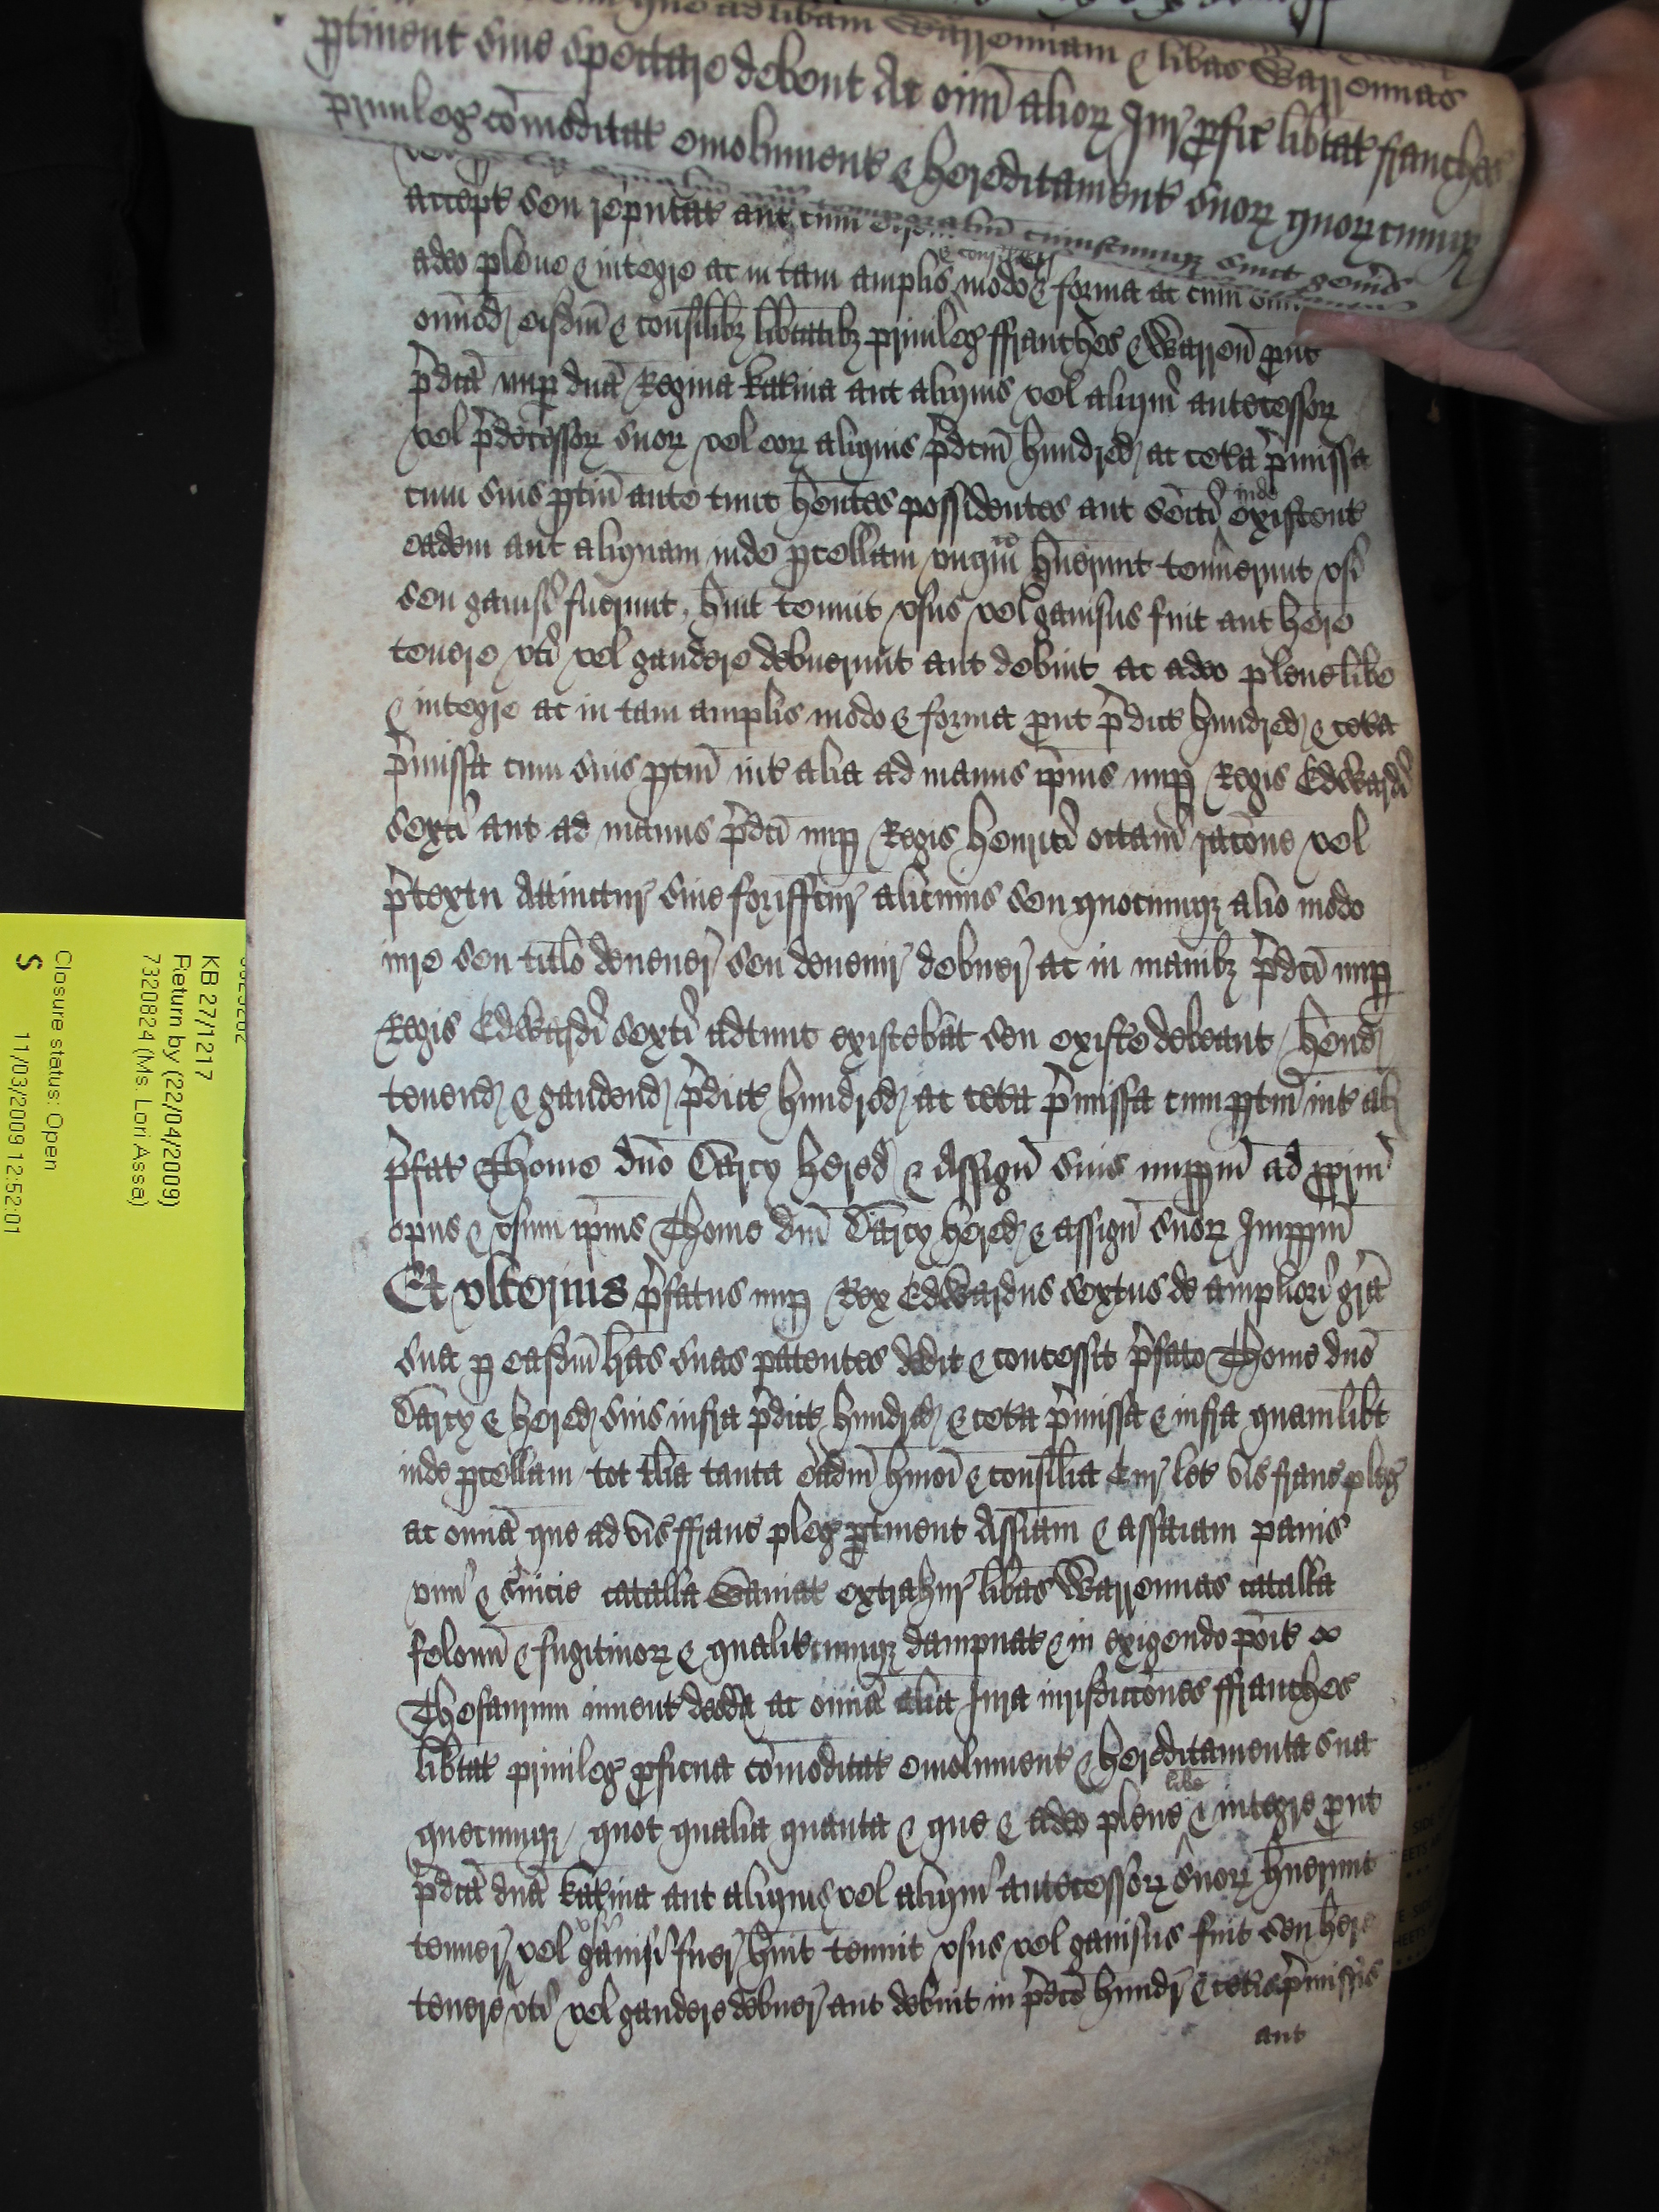 ad libam Warrenniam & libas Warrennas
ptinent sive spectare debent Ac oim̄ alioꝝ Jur̄ pfic̄ lib̄tat̄ franches̄
privileḡ com̄oditat̄ emolument̄ & hereditament̄ suoꝝ quoꝝcumqꝫ
accept̄ seu reputat̄ aut cum
adeo plene & integre ac in tam amplis modo & forma ac cum
om̄imod̄ eisdm̄ & consilibꝫ lib̄tatibꝫ privileḡ ffranches̄ & Warrenn̄ put
p̄dc̄a nup dn̄a Regina Kat̄ina aut aliquis vel aliqui antecessoꝝ
vel p̄decessoꝝ suoꝝ vel eoꝝ aliquis p̄dcm̄ hundred̄ ac cet̄a p̄missa
cum suis ptin̄ ante tunc hentes possidentes aut seiti inde existent̄
eadem aut aliquam inde pcellam unqm̄ huerunt tenuerunt usi
seu gavisi fuerunt huit tenuit usus vel gavisus fuit aut here
tenere uti vel gaudere debuerunt aut debuit ac adeo plene libe
& integre ac in tam amplis modo & forma put p̄dict̄ hundred̄ & cet̄a
p̄missa cum suis ptin̄ int̄ alia ad manus ip̄ius nup Regis Edwardi
sexti aut ad manus p̄dc̄i nup Regis Henrici octavi rac̄one vel
p̄textu Attinctur̄ sive forisfc̄ur̄ alicuius seu quocumqꝫ alio modo
iure seu titlo devener̄ seu devenir̄ debuer̄ ac in manibꝫ p̄dc̄i nup
Regis Edwardi sexti adtunc existebat̄ seu existe debeant / Hend̄
tenend̄ & gaudend̄ p̄dict̄ hundred̄ ac cet̄a p̄missa cum ptin̄ int̄ al̄
p̄fat̄ Thome dn̄o Darcy hered̄ & Assign̄ suis imppm̄ ad ppriu̅
opus & usum ip̄ius Thome dn̄i Darcy hered̄ & assign̄ suoꝝ Imppm̄
Et ulterius p̄fatus nup Rex Edwardus sextus de ampliori gr̄a
sua p easdm̄ has suas patentes dedit & concessit p̄fato Thome dn̄o
Darcy & hered̄ suis infra p̄dict̄ hundred̄ & cet̄a p̄missa & infra quamlibt̄
inde pcellam tot tlia tanta eadm̄ hmoi & consilia Cur̄ let̄ vis̄ franc pleḡ
ac omia que ad vis̄ ffranc pleḡ ptinent Assiam & assaiam panis
vini & s̄vicie catalla Waviat̄ extrahur̄ libas Warrennas catalla
felonu̅ & fugitivoꝝ & qualit̄cumqꝫ dampnat̄ & in exigendo poit̄
Thesaurum invent̄ deod̄ ac omia alia Jura iurisdicc̄ones ffranches̄
lib̄tat̄ privileḡ pficua com̄oditat̄ emolument̄ & hereditamenta sua
quecumqꝫ / quot qualia quanta & que & adeo plene libe & integre put
p̄dc̄a dn̄a Kat̄ina aut aliquis vel aliqui antecessoꝝ suoꝝ huerunt
tenuer̄ usi vel gavisi fuer̄ huit tenuit usus vel gavisus fuit seu here
tenere uti vel gaudere debuer̄ aut debuit in p̄dc̄o hundr̄ & cet̄is p̄missis
aut
KB 27/1217
Return by (22/04/2009)
7320824 (Ms. Lori Assa)
Closure status: Open
S 11/03/2009 12:52:01